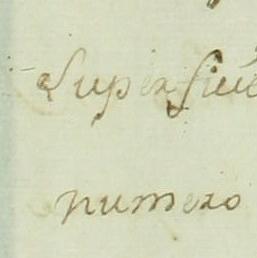 Superficie
numero